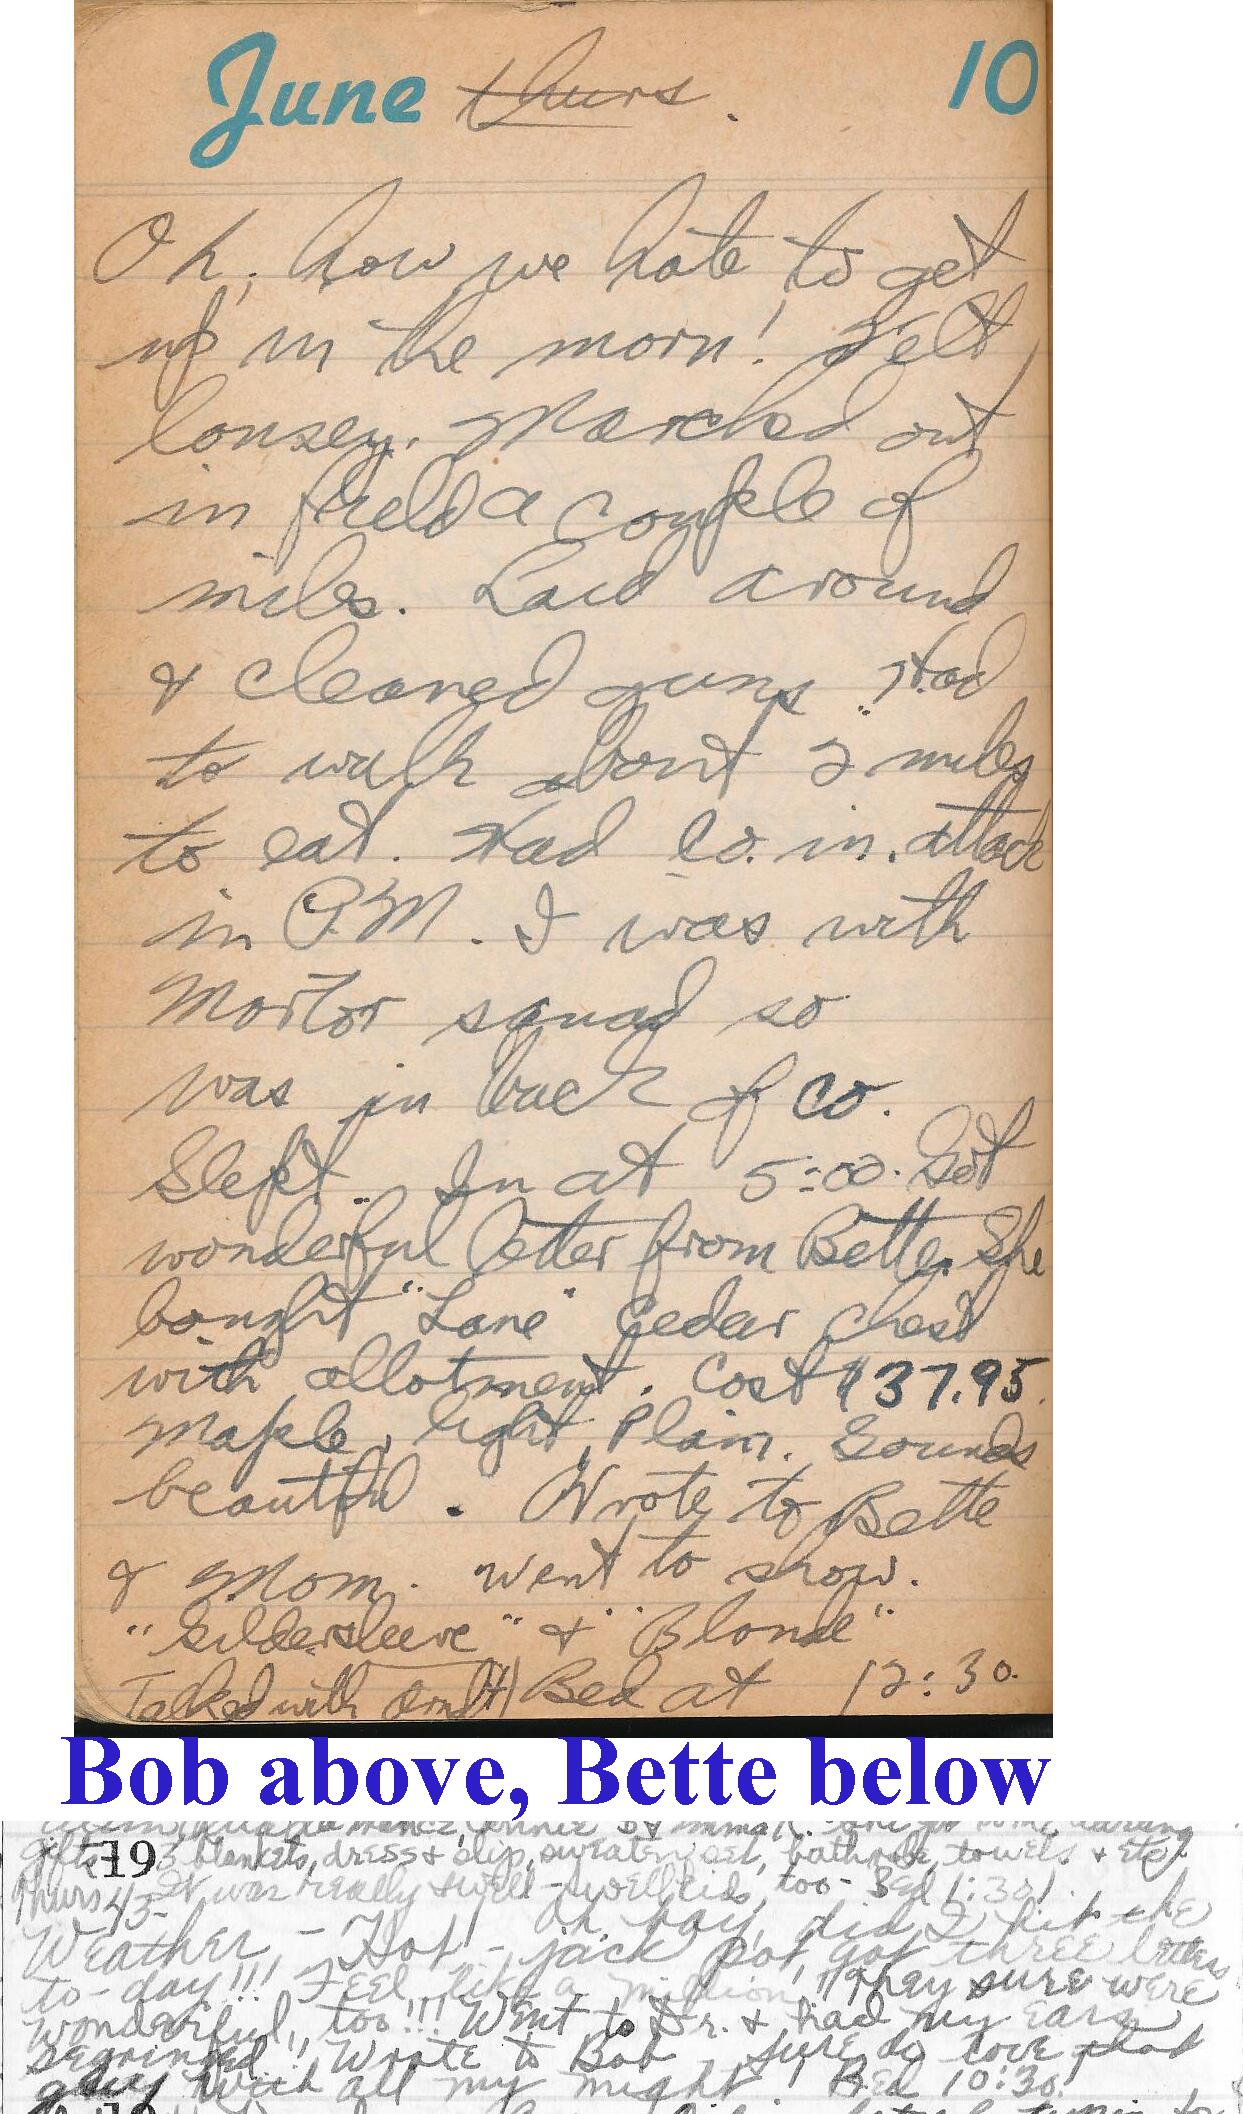 June thurs. 10
Oh, how we hate to get
up in the morn! Felt
lousey. Marched out
in field a couple of
miles. Laid around
& cleaned guns. Had
to walk about 2 miles
to eat. Had Co. in attack
in P.M. I was with
Mortor squad so
was in back of co.
Slept. In at 5:00. Got
wonderful letter from Bette. She
bought "Lane" Cedar chest
with allotment. Cost $37.95.
Maple, light, Plain. Sounds
beautful. Wrote to Bette
& Mom. Went to show.
"Gildersleeve" & "Blondie"
Talked with Bed at 12:30.
Bob above, Bette below
gifts 19 3 blankets, dress & slip, sweater set, bathrobe, towels & etc.
Thurs 43- It was really swell - swell eats, too - Bed 1:30!
Weather - Hot! Oh boy, did I hit the
jack pot, got three letters
to-day!!! Feel like a million!! They sure were
wonderful, too!!! Went to Dr. & had my ears
Wrote to Bob, sure do love that
guy with all my might! Bed 10:30!
19